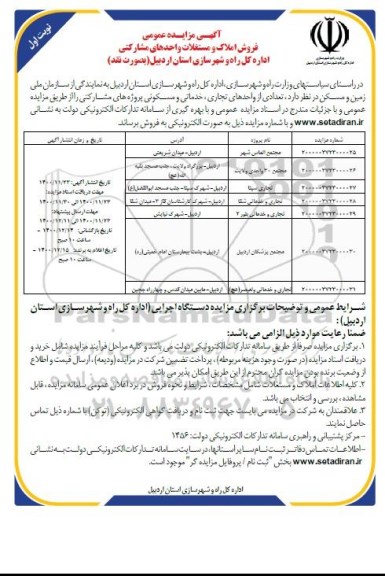 نوبت اول
آگهی مزایده عمومی
فروش املاک و مستغلات واحدهای مشارکتی
اداره کل راه و شهرسازی استان اردبیل (بصورت نقد)
در راستای سیاستهای وزارت راه و شهرسازی، اداره کل راه و شهرسازی استان اردبیل به نمایندگی از سازمان ملی
زمین و مسکن در نظر دارد، تعدادی از واحدهای تجاری، خدماتی و مسکونی پروژه های مشارکتی را از طریق مزایده
عمومی و با جزئیات مندرج در اسناد مزایده عمومی و با بهره گیری از سامانه تدارکات الکترونیکی دولت به نشانی
www.setadiran.ir و با شماره مزایده ذیل به صورت الکترونیکی به فروش برساند.
شماره مزایده نام پروژه آدرس تاریخ و زمان انتشار آگهی
مجتمع الماس شهر اردبیل- میدان شریعتی
اردبیل- بزرگراه ولایت، جنب مسجد بقیه
تجاری سینا اردبیل- شهرک سینا- جنب مسجد ابوالفضل(ع)
تجاری و خدماتی اردبیل- شهرک کارشناسان
تجاری و خدماتی اردبیل- شهرک نیایش
مجتمع پزشکان اردبیل اردبیل- پشت بیمارستان امام خمینی(ره)
تاریخ انتشار آگهی: ۱۴۰۰/۱۱/۲۳
مهلت دریافت اسناد مزایده:
۱۴۰۰/۱۱/۲۳ الی ۱۴۰۰/۱۱/۳۰
مهلت ارسال پیشنهاد:
تاریخ بازگشائی: ۱۴۰۰/۱۲/۱۴
ساعت ۱۰ صبح
تاریخ اعلام به برنده: ۱۴۰۰/۱۲/۱۵
ساعت ۱۰ صبح
شرایط عمومی و توضیحات برگزاری مزایده دستگاه اجرایی (اداره کل راه و شهرسازی استان
اردبیل):
ضمنا رعایت موارد ذیل الزامی می باشد:
۱. برگزاری مزایده صرفا از طریق سامانه تدارکات الکترونیکی دولت می باشد و کلیه مراحل فرآیند مزایده شامل خرید و
دریافت اسناد مزایده (در صورت وجود هزینه مربوطه)، پرداخت تضمین شرکت در مزایده (ودیعه)، ارسال قیمت و اطلاع
از وضعیت برنده بودن مزایده گران محترم از این طریق امکان پذیر می باشد.
۲. کلیه اطلاعات املاک و مستغلات شامل مشخصات، شرایط و نحوه فروش در برد اعلان عمومی سامانه مزایده، قابل
مشاهده، بررسی و انتخاب می باشد.
۳. علاقمندان به شرکت در مزایده می بایست جهت ثبت نام و دریافت گواهی الکترونیکی (توکن) با شماره ذیل تماس
حاصل نمایند.
- مرکز پشتیبانی و راهبری سامانه تدارکات الکترونیکی دولت: ۱۴۵۶
- اطلاعات تماس دفاتر ثبت نام سایر استانها، در سایت سامانه تدارکات الکترونیکی دولت به نشانی
www.setadiran.ir بخش "ثبت نام / پروفایل مزایده گر" موجود است.
اداره کل راه و شهرسازی استان اردبیل